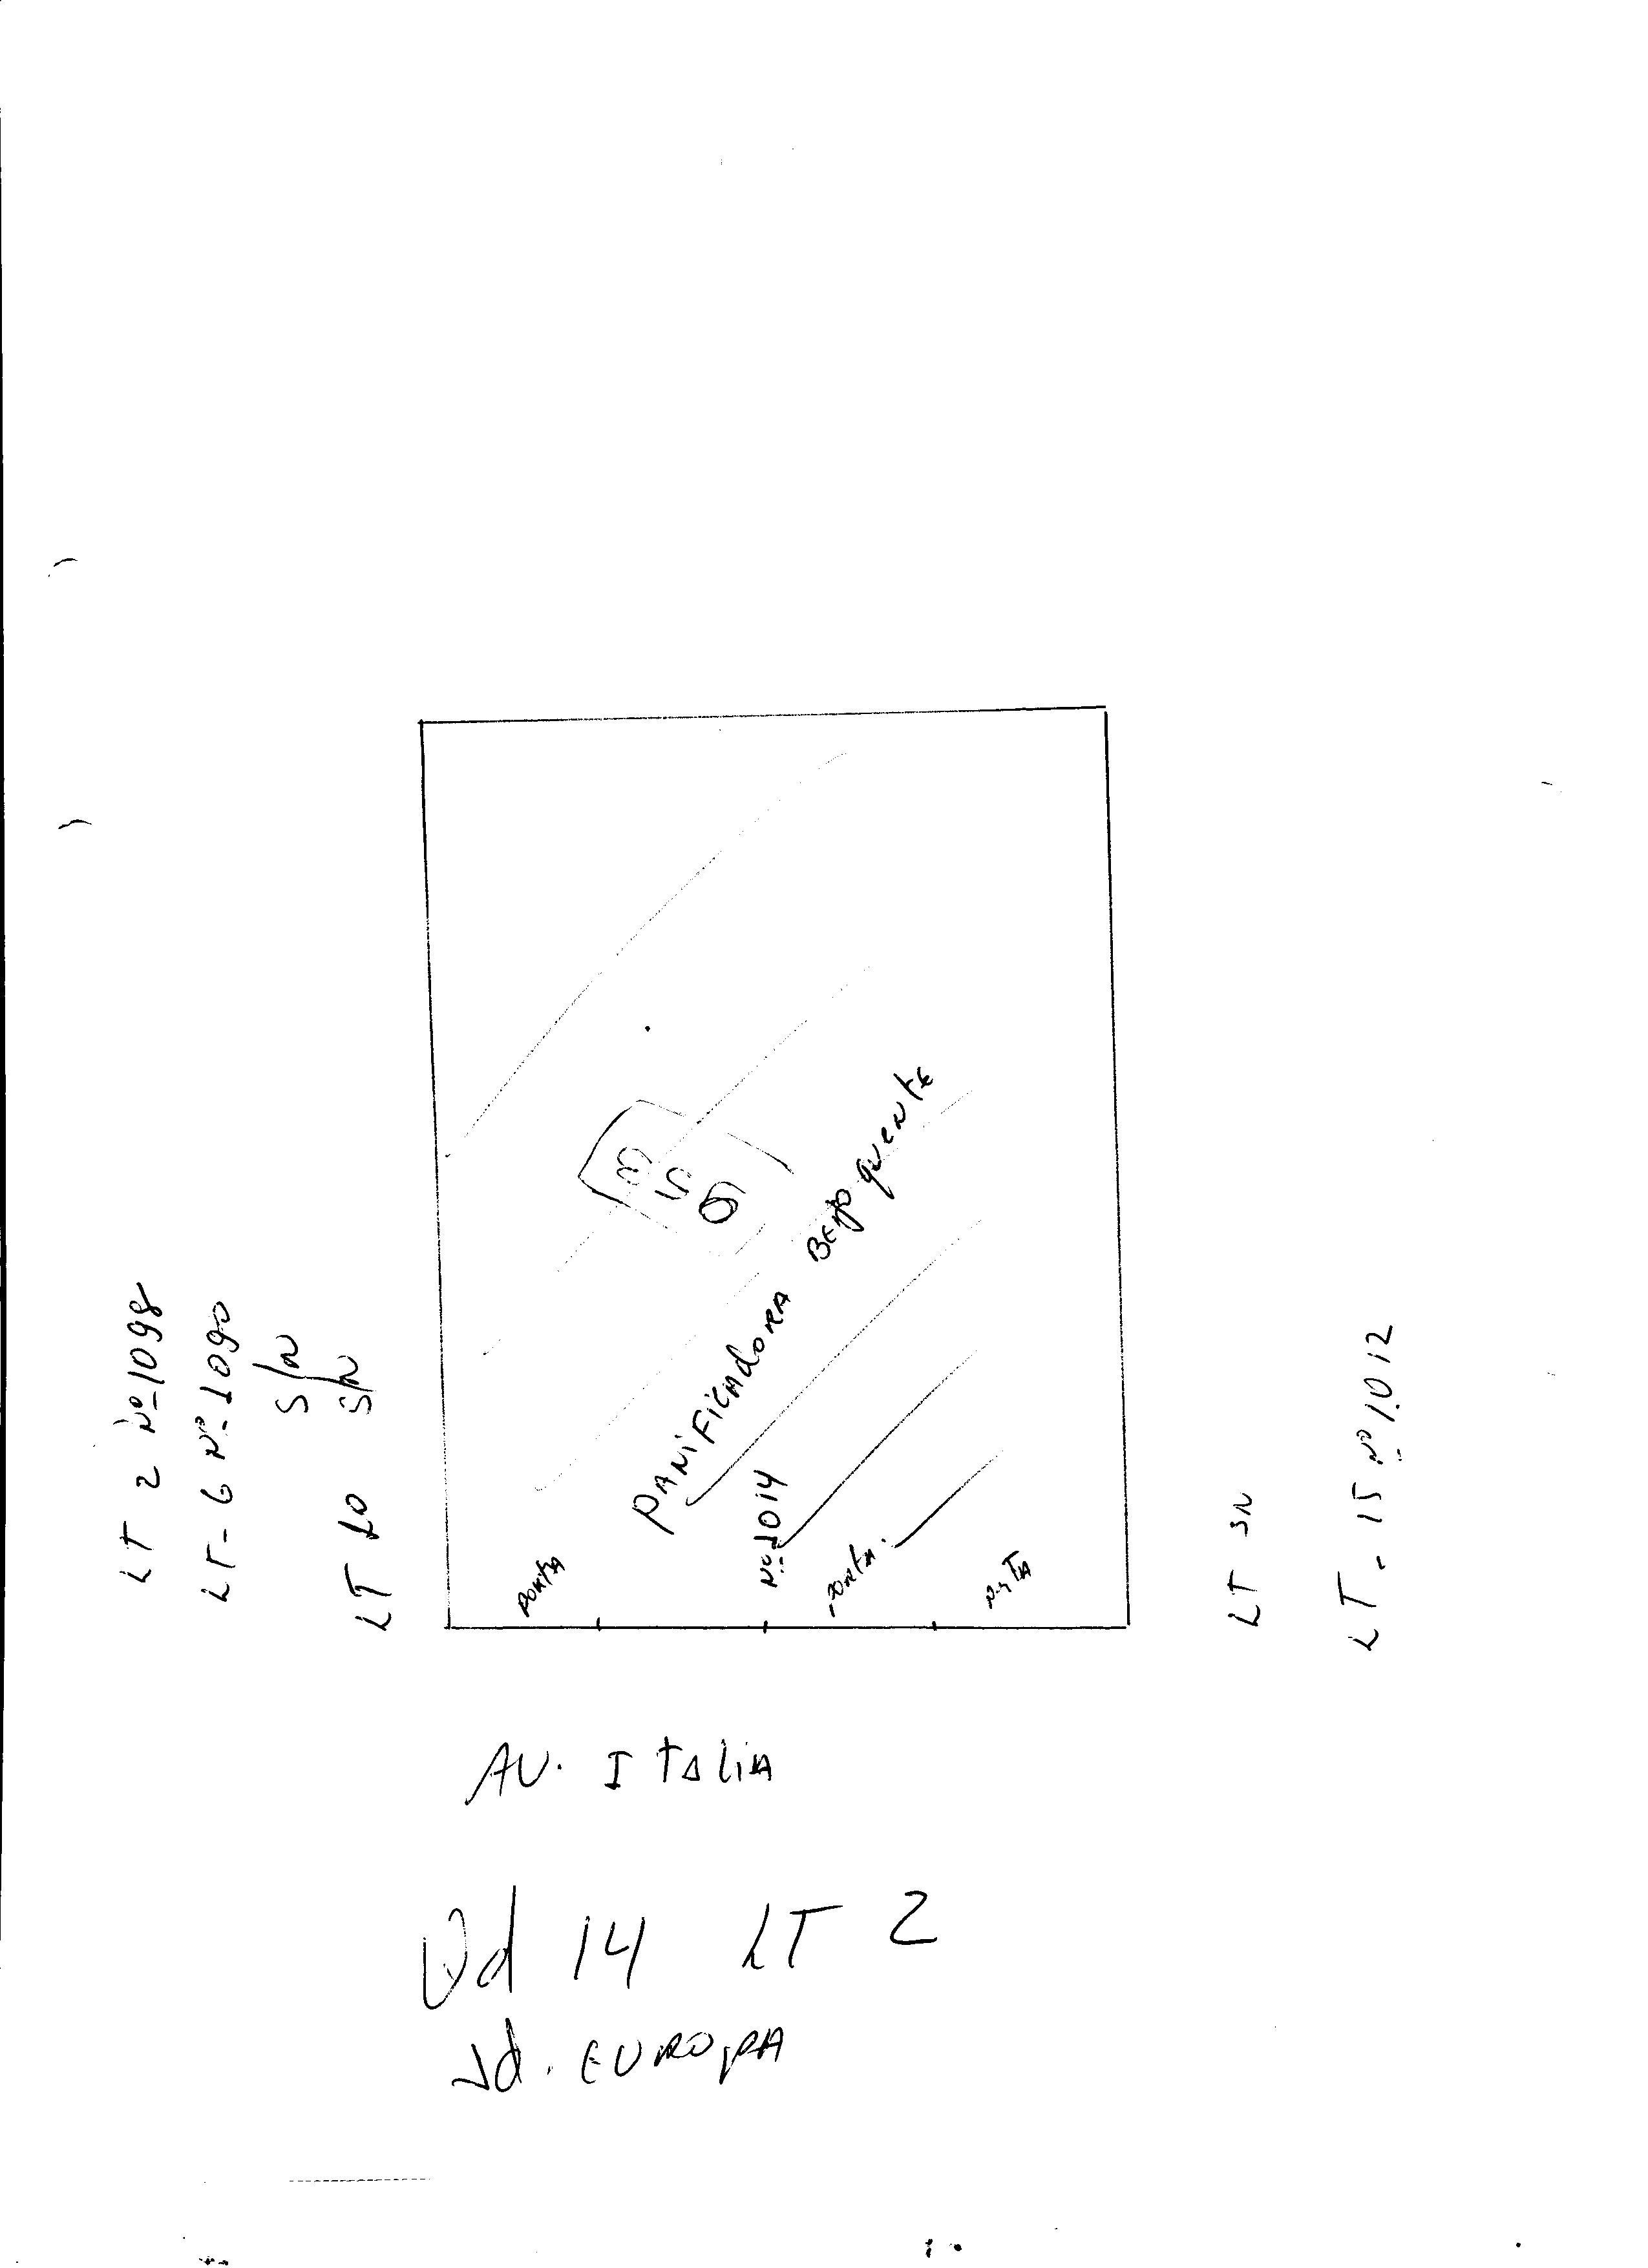 LT 2 Nº 1098
LT - 6 Nº 1090
S/N
LT 10 S/N
PANIFICADORA BEIJO quente
Nº 1014
PORTA
PORTA
LT SN
LT - 15 Nº 1012
AV. ITALIA
Qd 14 LT 2
Jd. EUROPA